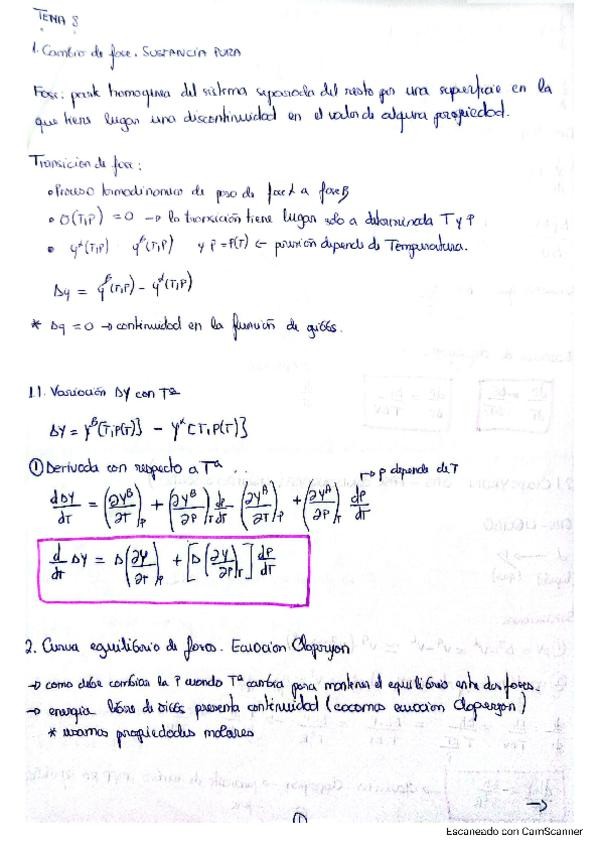 TEMA 8
1. Cambio de fase. SUSTANCIA PURA
Fase: parte homogénea del sistema separada del resto por una superficie en la
que tiene lugar una discontinuidad en el valor de alguna propiedad.
Transición de fase:
• Proceso termodinámico de paso de fase α a fase β
• (T,P) = 0 → la transición tiene lugar solo a determinada T y P
• y^α(T,P) y^β(T,P) y P = P(T) ← presión depende de Temperatura.
Δy = y^β(T,P) - y^α(T,P)
* Δg = 0 → continuidad en la función de gibbs.
1.1. Variación ΔY con Tª
ΔY = Y^β[T,P(T)] - Y^α[T,P(T)]
① Derivada con respecto a Tª ... → P depende de T
dΔY/dT = (∂Y^β/∂T)_P + (∂Y^β/∂P)_T dP/dT (∂Y^A/∂T)_P + (∂Y^A/∂P)_T dP/dT
d/dT ΔY = Δ(∂Y/∂T)_P + [Δ(∂Y/∂P)_T] dP/dT
2. Curva equilibrio de fases. Ecuación Clapeyron
→ como debe cambiar la P cuando Tª cambia para mantener el equilibrio entre dos fases.
→ energía libre de Gibbs presenta continuidad (sacamos ecuación Clapeyron)
* usamos propiedades molares
→
①
Escaneado con CamScanner